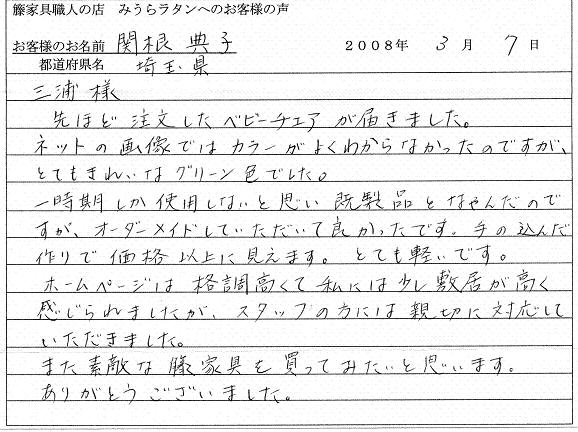 籐家具職人の店　みうらラタンへのお客様の声
お客様のお名前　関根 典子　２００８年　3　月　7　日
都道府県名　埼玉県
三浦様
先ほど注文したベビーチェアが届きました。
ネットの画像ではカラーがよくわからなかったのですが、
とてもきれいなグリーン色でした。
一時期しか使用しないと思い既製品となやんだので
すが、オーダーメイドしていただいて良かったです。手の込んだ
作りで価格以上に見えます。とても軽いです。
ホームページは格調高くて私には少し敷居が高く
感じられましたが、スタッフの方には親切に対応して
いただきました。
また素敵な籐家具を買ってみたいと思います。
ありがとうございました。